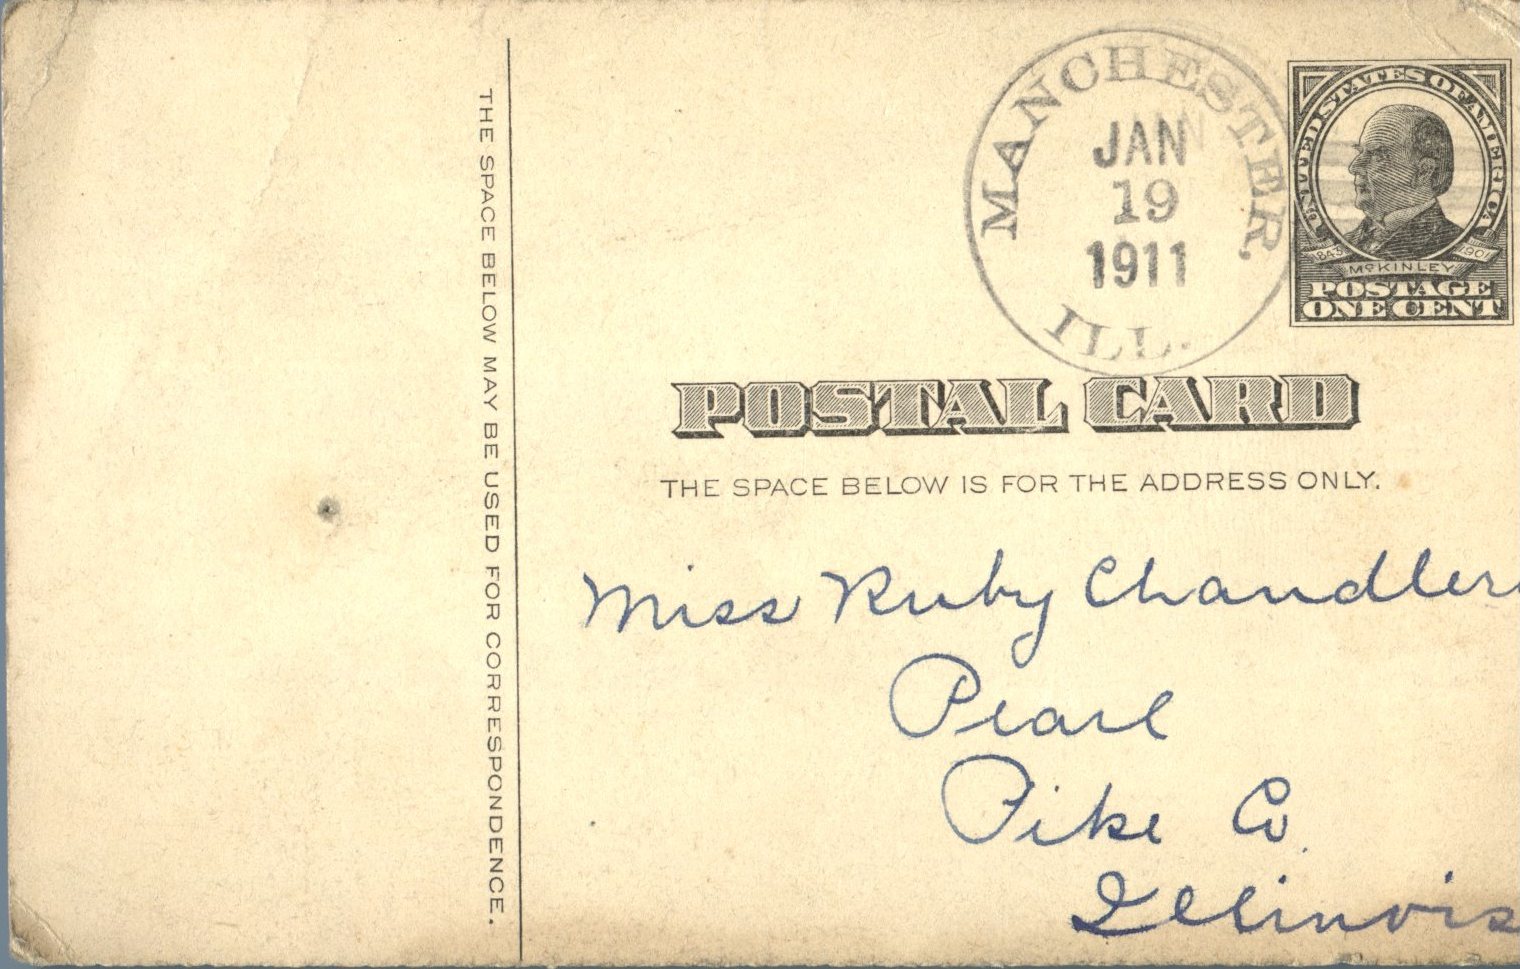 THE SPACE BELOW MAY BE USED FOR CORRESPONDENCE.
MANCHESTER.
JAN
19
1911
ILL.
UNITED STATES OF AMERICA
1843 1901
McKINLEY
POSTAGE
ONE CENT
POSTAL CARD
THE SPACE BELOW IS FOR THE ADDRESS ONLY.
Miss Ruby Chandler
Pearl
Pike Co.
Illinois